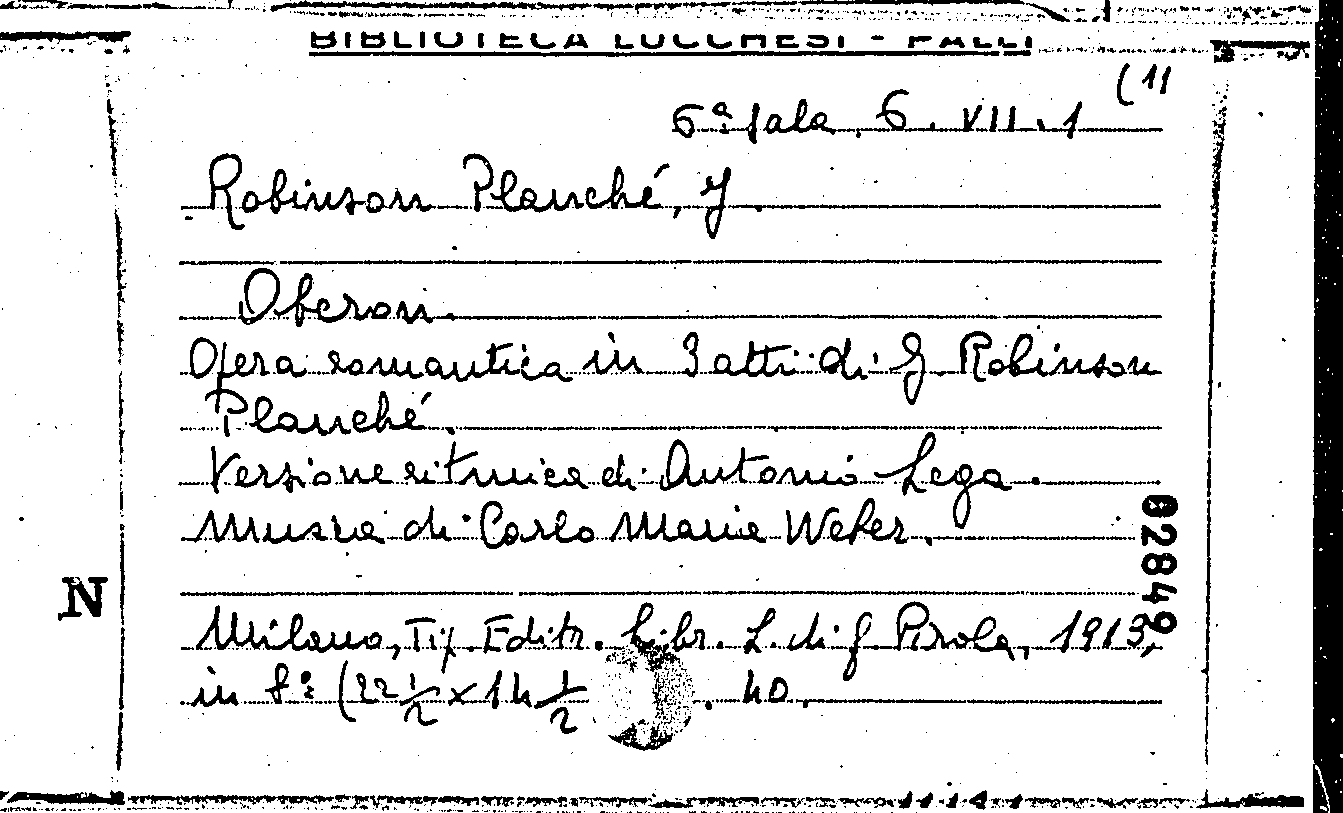 BIBLIOTECA LUCCHESI - PALLI
(11
6ª Sala. 6. VII. 1
Robinson Planché, J.
Oberon.
Opera romantica in 3 atti di G. Robinson
Planché.
Versione ritmica di Antonio Lega.
Musica di Carlo Maria Weber.
02849
N
Milano, Tip. Editr. Libr. L. di G. Pirola, 1913,
in 8º (22 1/2 x 14 1/2 . 40.